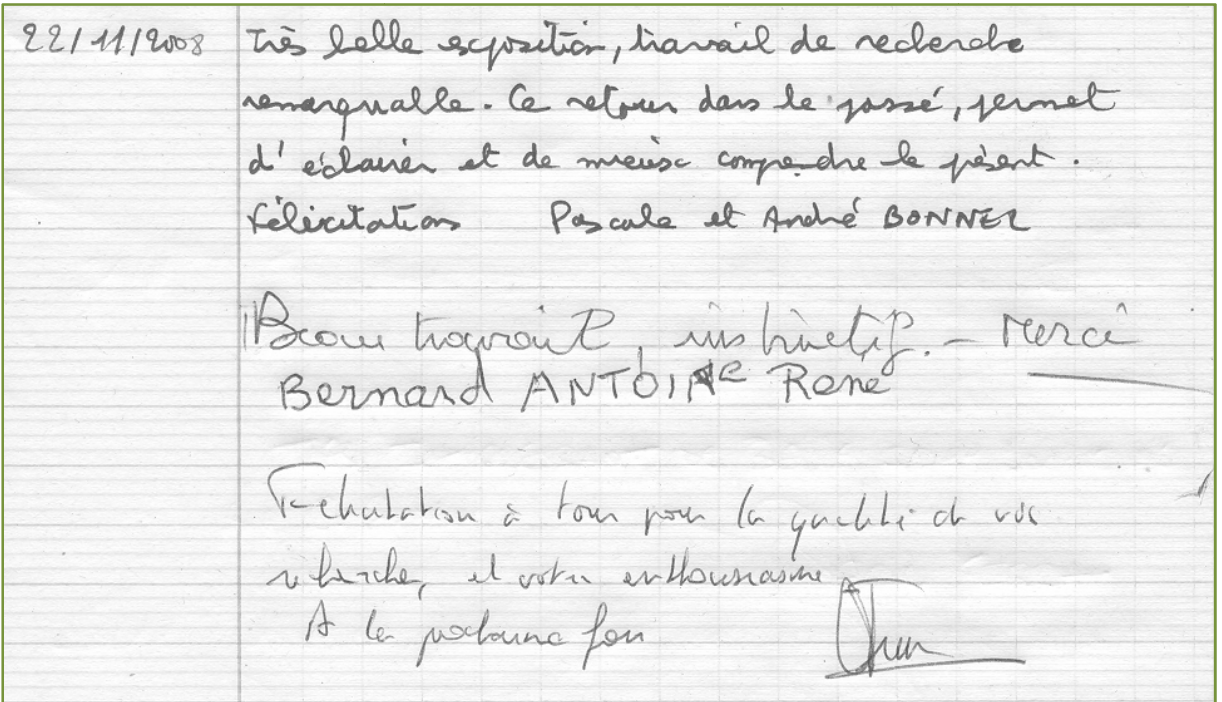 22/11/2008 Très belle exposition, travail de recherche
remarquable. Ce retour dans le passé, permet
d'éclairer et de mieux comprendre le présent.
Félicitations Pascale et André BONNEL
Beau travail, instructif. - Merci
Bernard ANTOINE René
Félicitation à tous pour la qualité de vos
recherche, et votre enthousiasme
A la prochaine fois